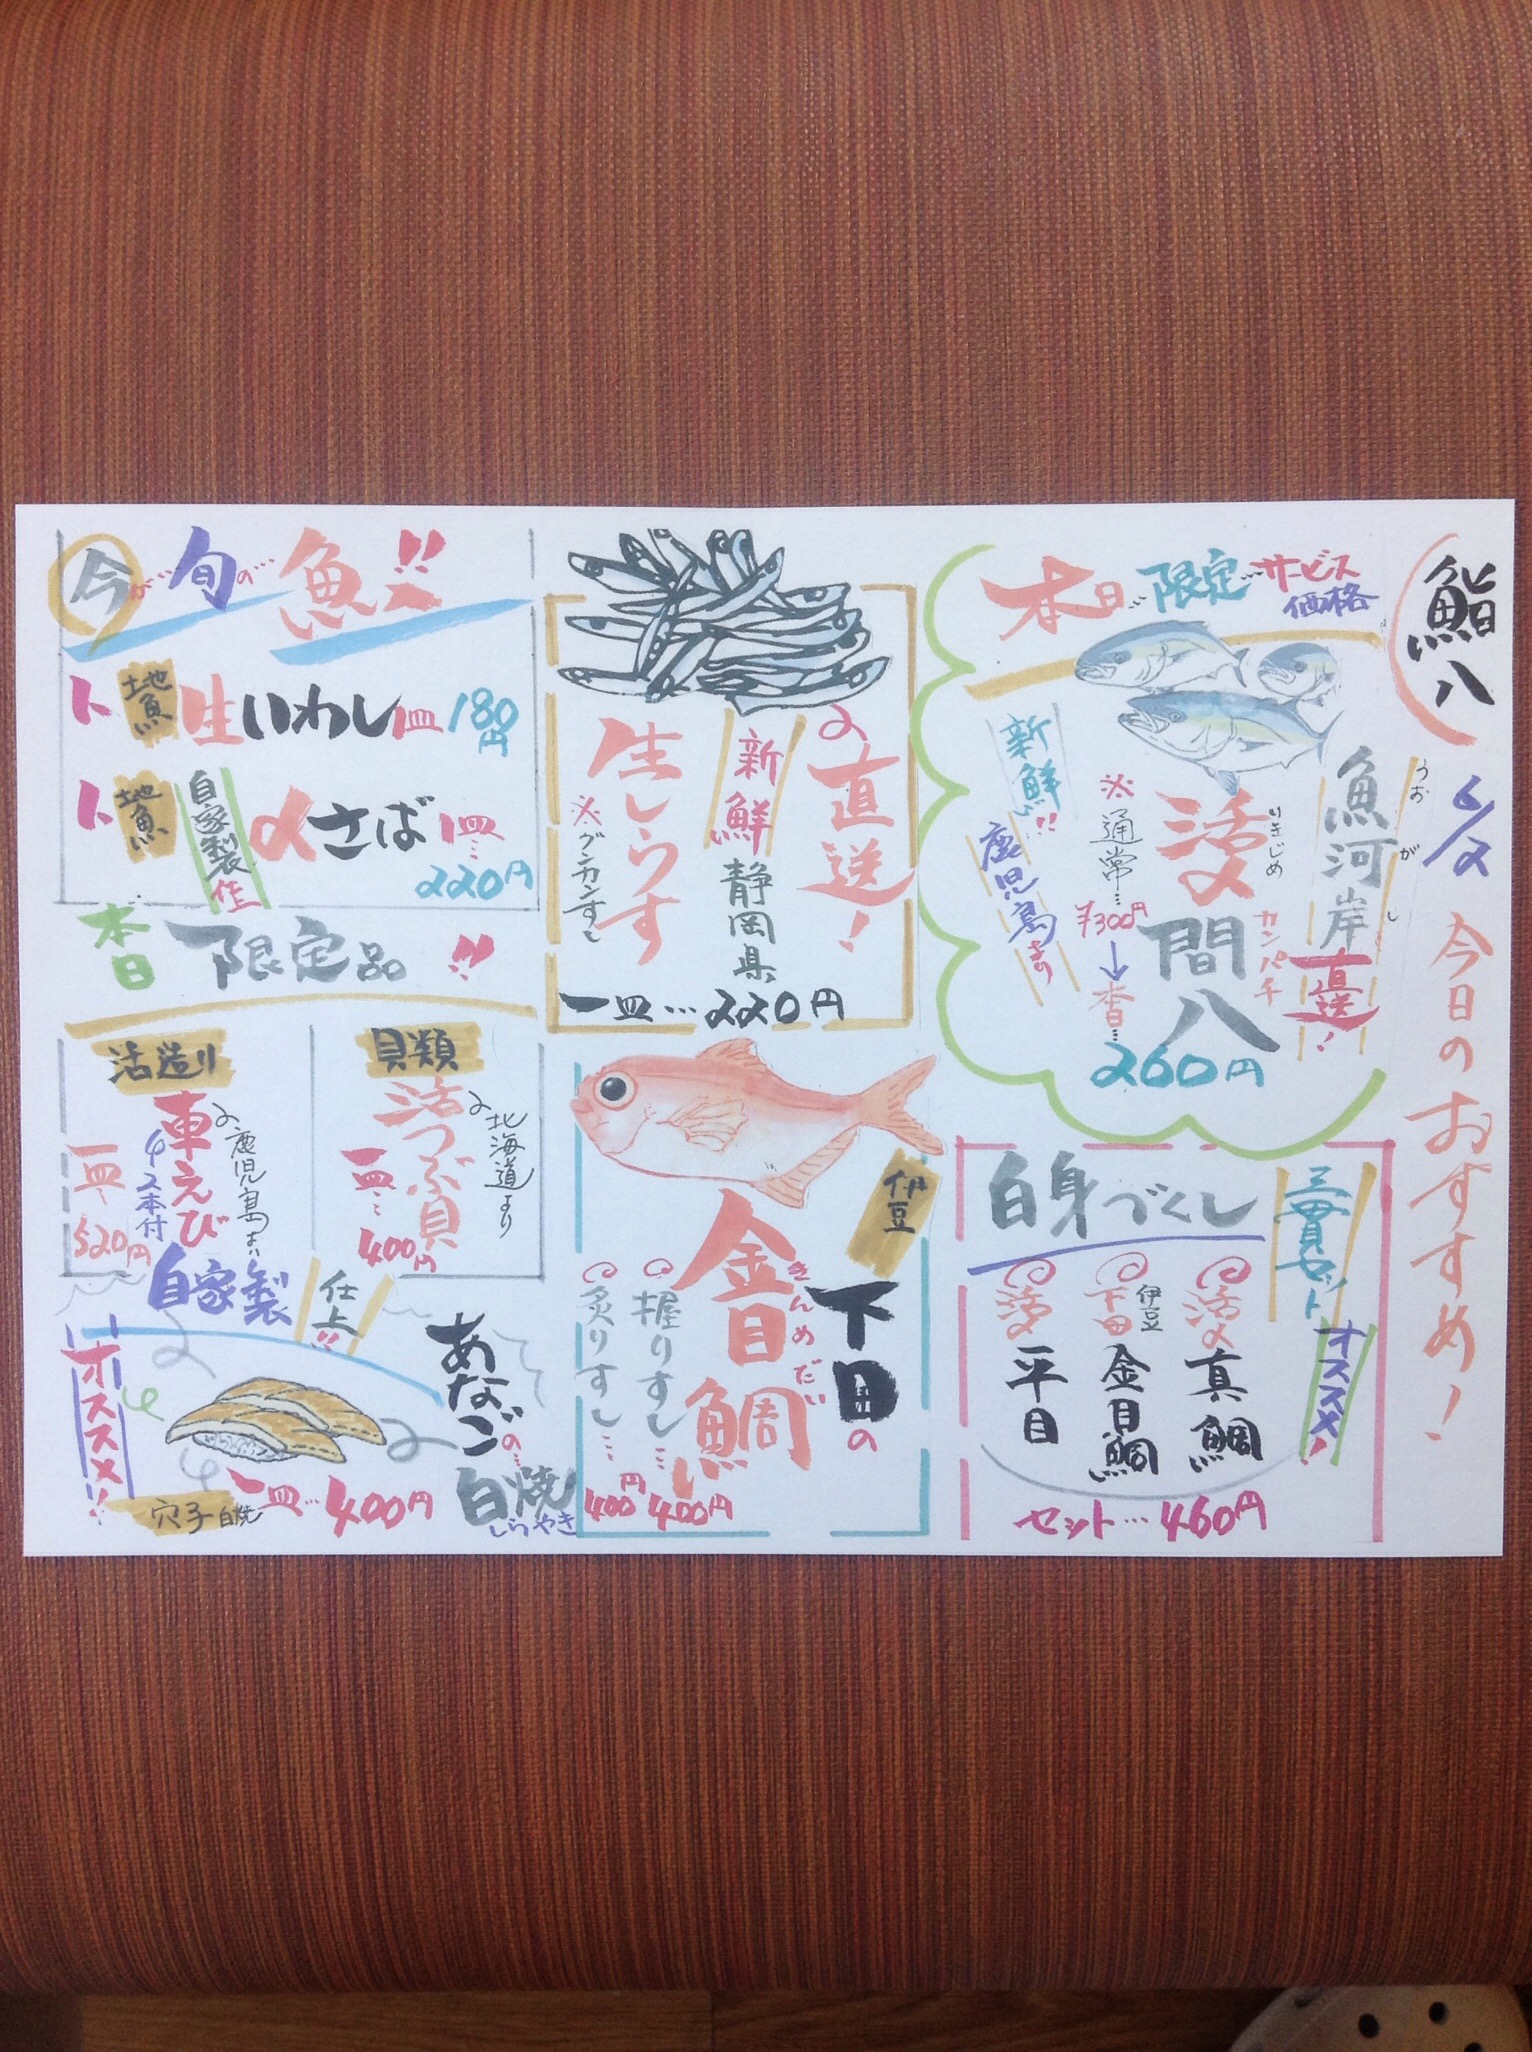 鮨八
6/2
今日のおすすめ!
本日限定…サービス
価格
魚河岸直送!
うおがし
活〆
いきじめ
間八
カンパチ
新鮮!!
鹿児島より
※通常…¥300円
↓
本日…
260円
白身づくし
三貫セット
オススメ!
活〆真鯛
伊豆下田金目鯛
活〆平目
セット…460円
直送!
新鮮
静岡県
生しらす
※グンカンすし
一皿…220円
伊豆
下田の
金目鯛
きんめだい
握りすし…400円
炙りすし…400円
今が…旬の…魚!!
地魚生いわし一皿180円
地魚自家製〆さば一皿…
220円
本日限定品!!
貝類
北海道より
活つぶ貝
一皿…400円
活造り
鹿児島より
車えび
2本付
一皿…520円
自家製仕上!!
あなごの…
白焼
しらやき
オススメ!!
穴子白焼
一皿…400円